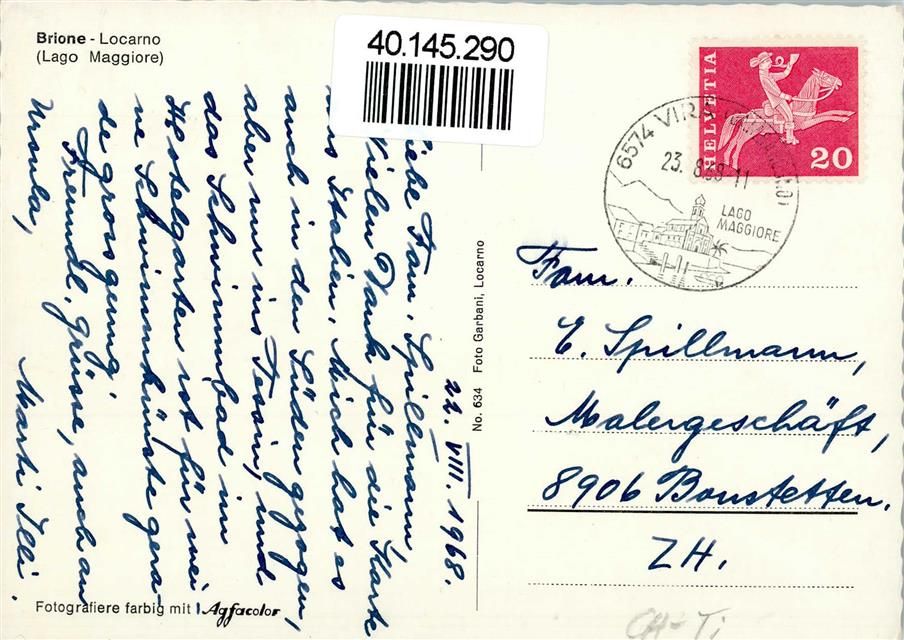 Brione - Locarno
(Lago Maggiore)
40.145.290
22. VIII. 1968.
liebe Fam. Spillmann
Vielen Dank für die Karte
aus Italien. Mich hat es
auch in den Süden gezogen,
aber nur ins Tessin, und
das Schwimmbad im
Hotelgarten ist für mei-
ne Schwimmkünste gera-
de gross genug!
Freundl. Grüsse, auch an
Ursula,
Marti Illi.
No. 634 Foto Garbani, Locarno
Fotografiere farbig mit Agfacolor
HELVETIA
20
6574 VIRA
23. 8.68-11
LAGO
MAGGIORE
Fam.
E. Spillmann,
Malergeschäft,
8906 Bonstetten.
ZH.
CH-Ti